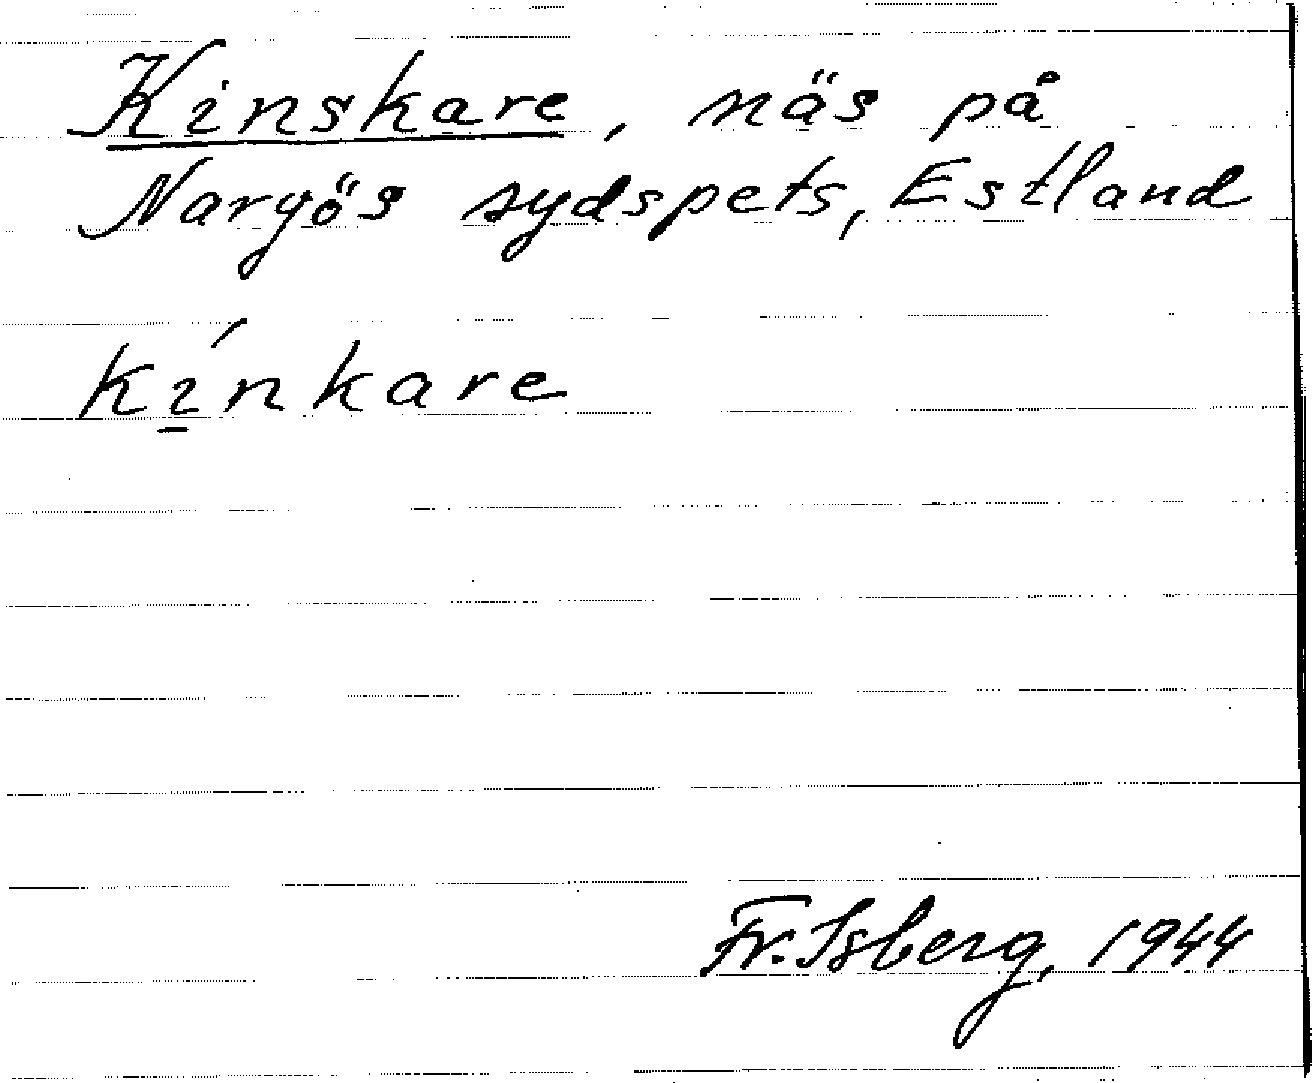 Kinskare, näs på
Nargös sydspets, Estland
kı̱́nkare
Fr. Isberg, 1944